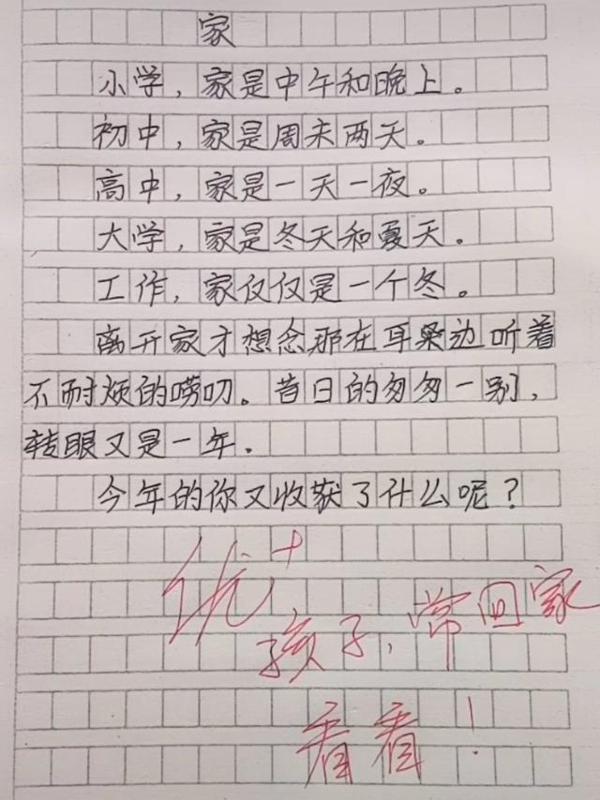 家
小学，家是中午和晚上。
初中，家是周末两天。
高中，家是一天一夜。
大学，家是冬天和夏天。
工作，家仅仅是一个冬。
离开家才想念那在耳朵边听着
不耐烦的唠叨。昔日的匆匆一别，
转眼又是一年.
今年的你又收获了什么呢？
优+
孩子，常回家
看看！